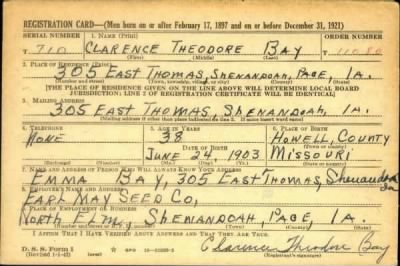 REGISTRATION CARD—(Men born on or after February 17, 1897 and on or before December 31, 1921)
SERIAL NUMBER 1. NAME (Print) ORDER NUMBER
T 710 CLARENCE THEODORE BAY
(First) (Middle) (Last)
2. PLACE OF RESIDENCE (Print)
305 EAST THOMAS, SHENANDOAH, PAGE, IA.
(Number and street) (Town, township, village, or city) (County) (State)
[THE PLACE OF RESIDENCE GIVEN ON THE LINE ABOVE WILL DETERMINE LOCAL BOARD
JURISDICTION; LINE 2 OF REGISTRATION CERTIFICATE WILL BE IDENTICAL]
3. MAILING ADDRESS
305 EAST THOMAS, SHENANDOAH, IA.
[Mailing address if other than place indicated on line 2. If same insert word same]
4. TELEPHONE 5. AGE IN YEARS 6. PLACE OF BIRTH
NONE 38 HOWELL, COUNTY
DATE OF BIRTH (Town or county)
JUNE 24 1903 MISSOURI
(Exchange) (Number) (Mo.) (Day) (Yr.) (State or country)
7. NAME AND ADDRESS OF PERSON WHO WILL ALWAYS KNOW YOUR ADDRESS
EMMA BAY, 305 EAST THOMAS, Shenandoah Ia
8. EMPLOYER'S NAME AND ADDRESS
EARL MAY SEED CO,
9. PLACE OF EMPLOYMENT OR BUSINESS
NORTH ELM, SHENANDOAH, PAGE, IA.
(Number and street or R. F. D. number) (Town) (County) (State)
I AFFIRM THAT I HAVE VERIFIED ABOVE ANSWERS AND THAT THEY ARE TRUE.
D. S. S. Form 1
(Revised 1-1-42) (over) Clarence Theodore Bay
(Registrant's signature)